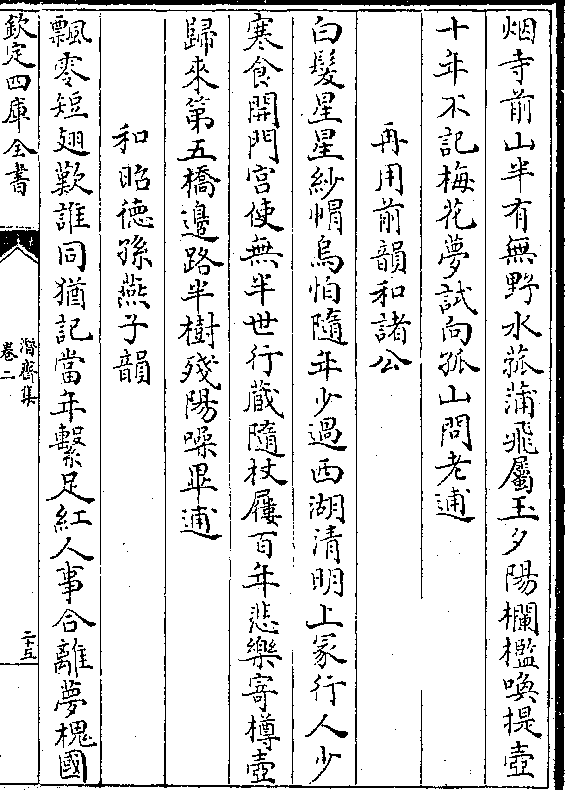 烟寺前山半有無野水菰蒲飛屬玉夕陽欄檻喚提壺
十年不記梅花夢試向孤山問老逋
再用前韻和諸公
白髮星星紗帽烏怕隨年少過西湖清明上冢行人少
寒食開門宫使無半世行蔵隨杖屨百年悲樂寄樽壺
歸來第五橋邊路半樹殘陽噪畢逋
和昭德孫燕子韻
飄零短翅歎誰同猶記當年繫足紅人事合離夢槐國
欽定四庫全書
潛齋集
卷二
二十五